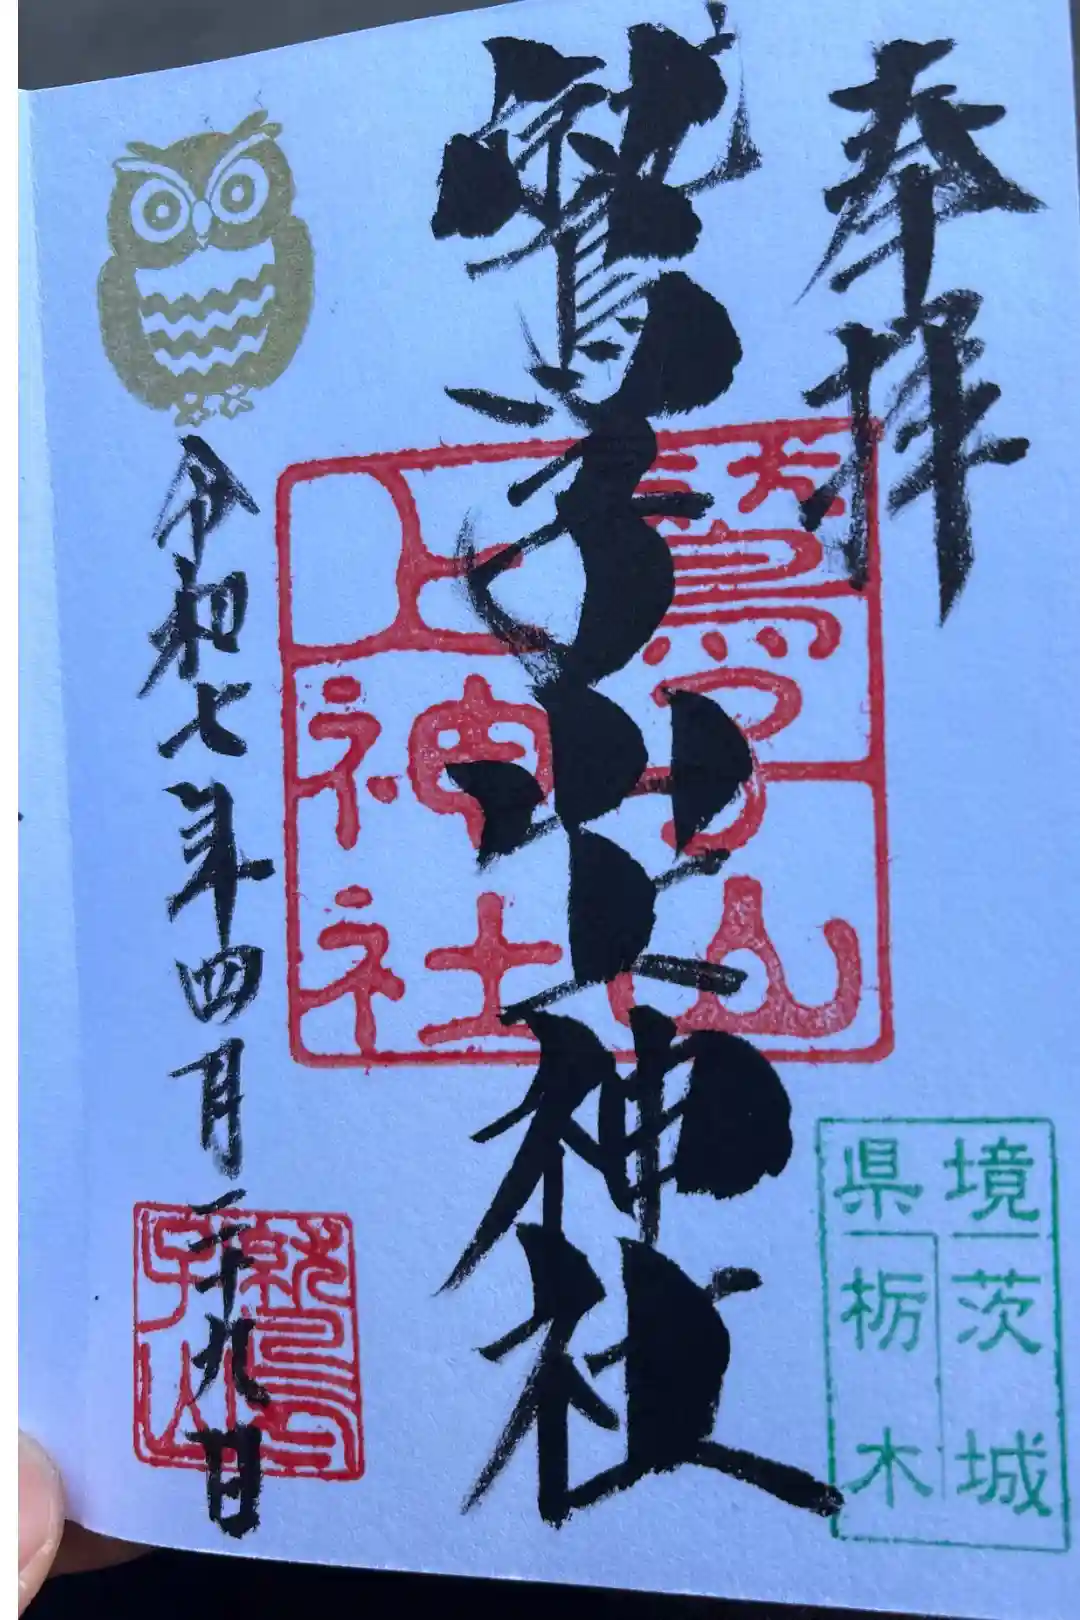 奉拝
鷲子山上神社
令和七年四月二十九日
鷲子山
上神社
鷲子山
県境
茨城
栃木